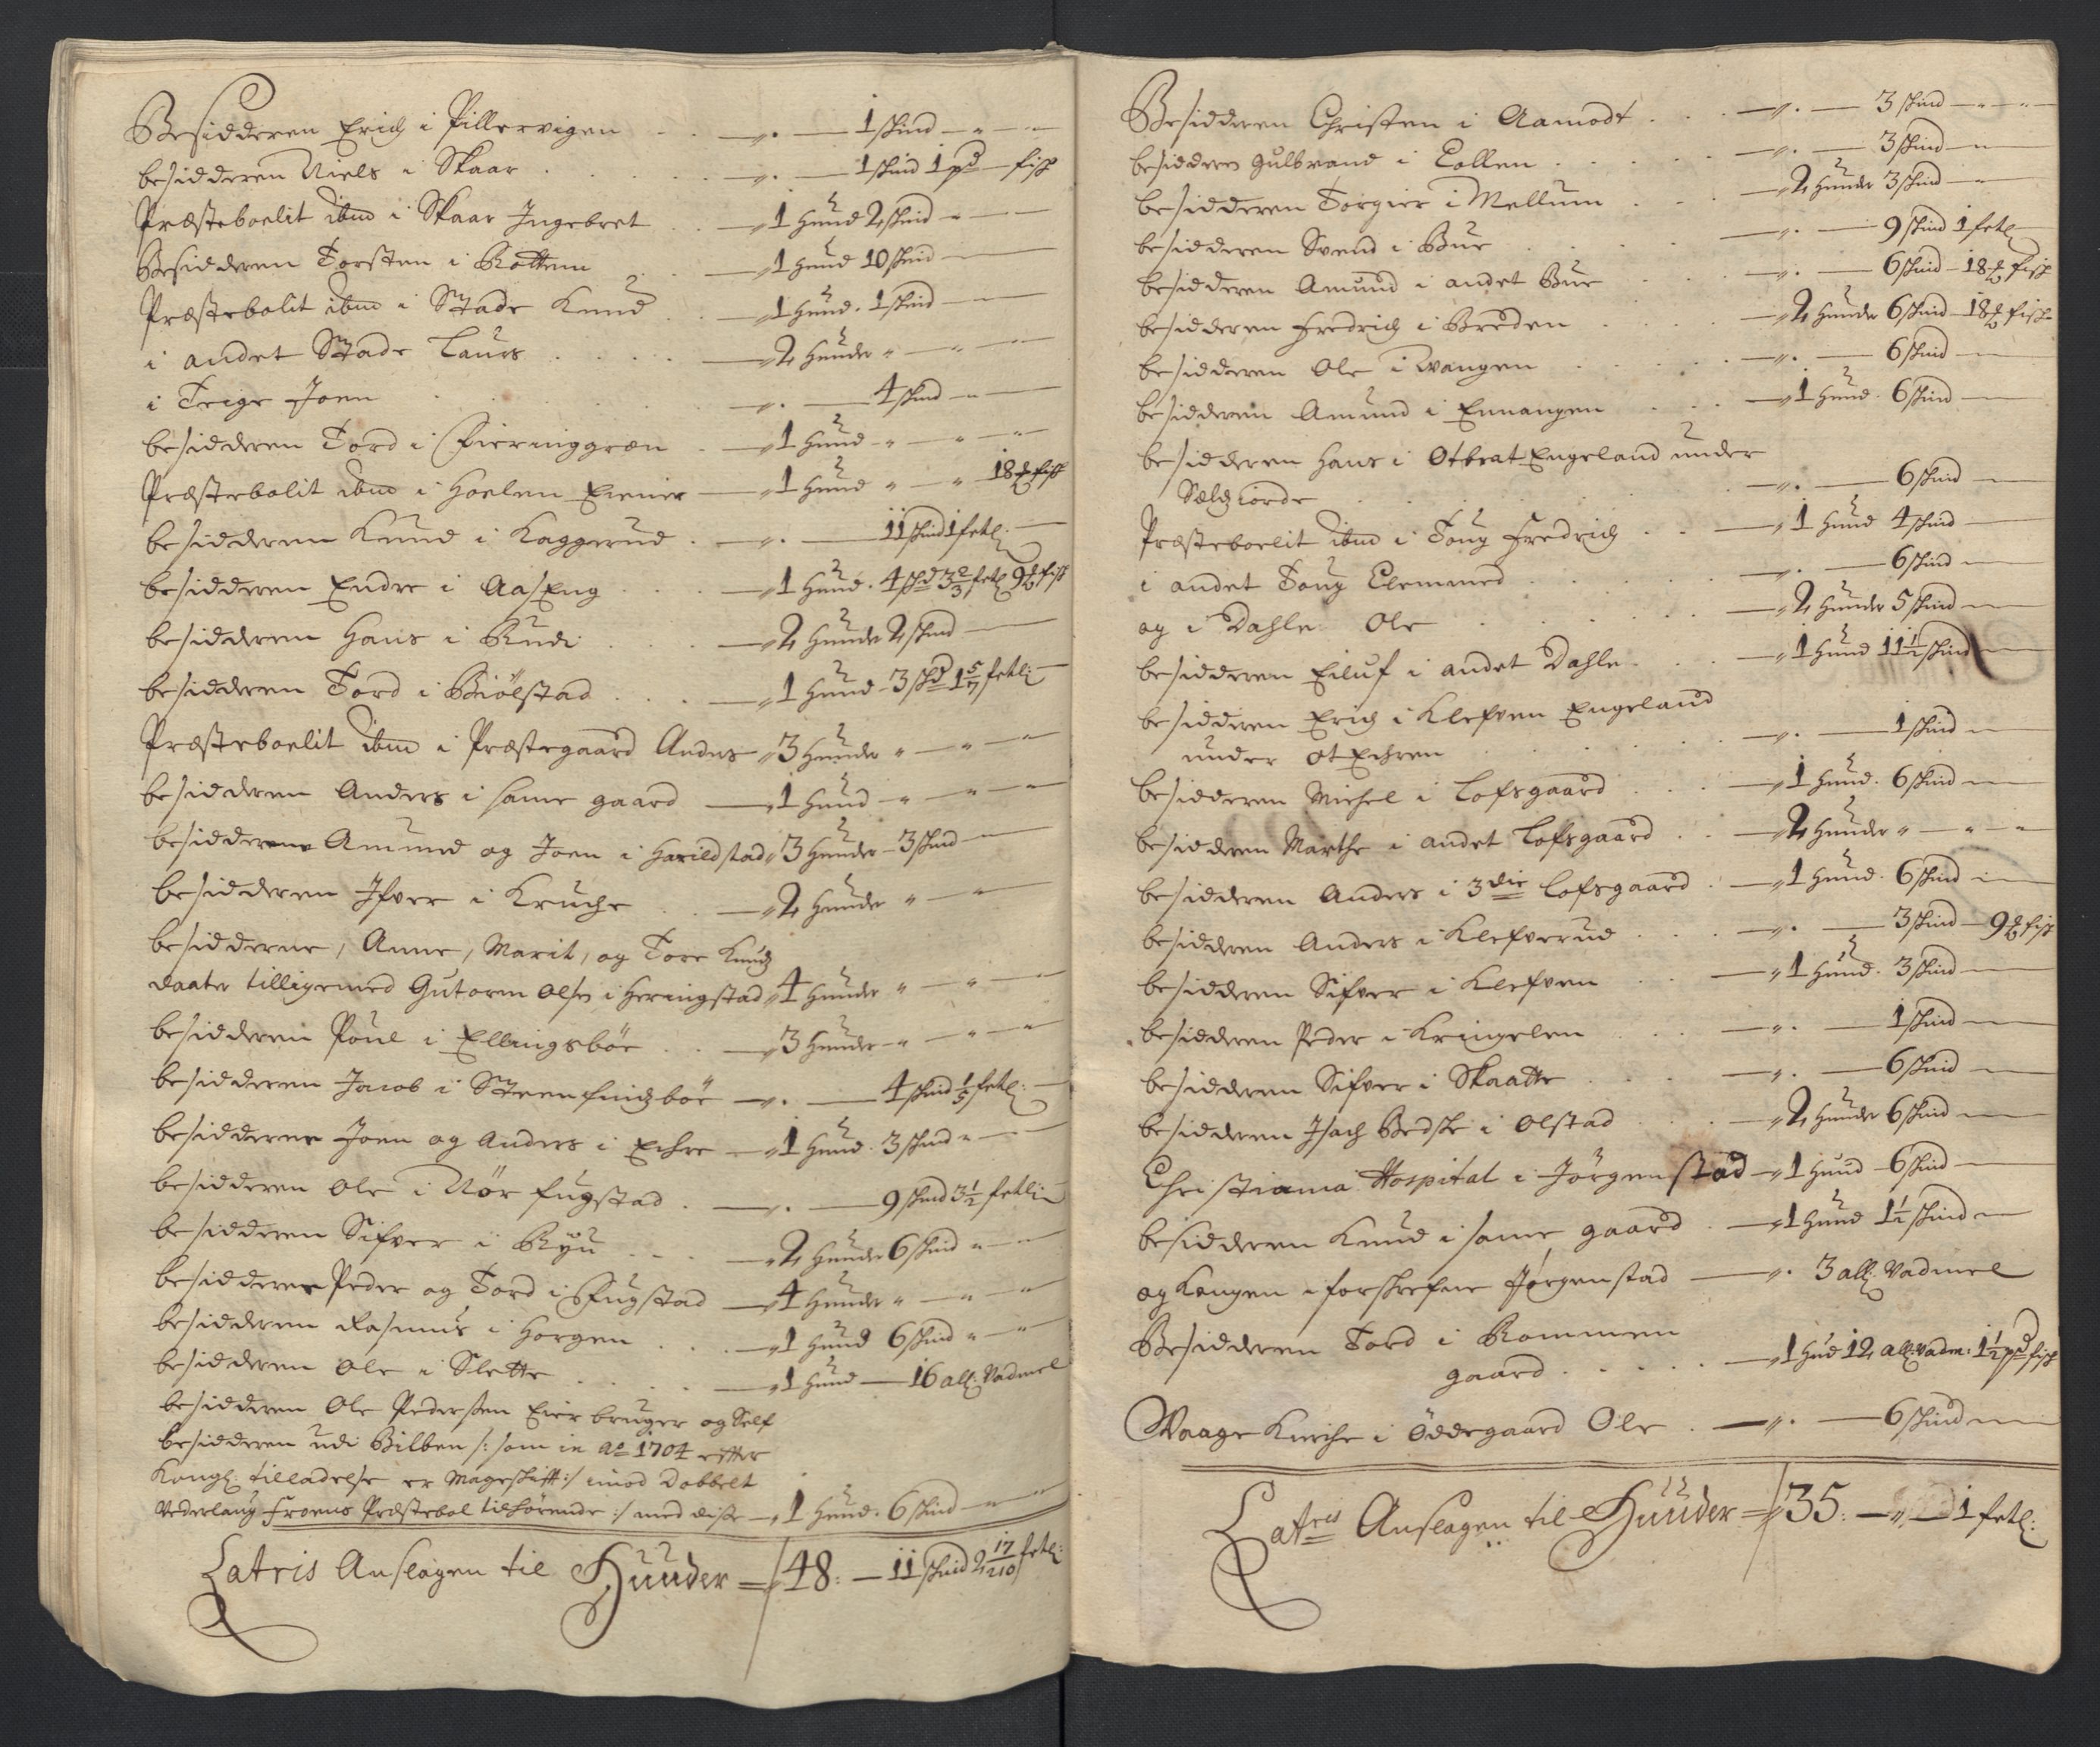 Besidderen Erich i Pillervigen — „ . — 1 skind — „ —
besidderen Niels i Skaar . . . — „ . — 1 skind 1 pd fisk
Præsteboelit ibm i Skaar Ingebret . . — „ 1 hund 2 skind „ —
Besidderen Torsten i Rottem . . — „ 1 hund 10 skind —
Præstebolit ibm i Stade Knud . . — „ 1 hund . 1 skind —
i andet Stade Laurs . . . — „ 2 hunder „ — „ —
i Teige Joen . . . — „ . — 4 skind — „ —
besidderen Tord i Fieringgræn . — „ 1 hund „ — „ —
Præstebolit ibm i Hoelen Einer — „ 1 hund „ — „ 18 ℔ fisk
besidderen Knud i Kaggerud . — „ . — 11 skind 1 fetl:
besidderen Endre i Aaseng . . . — „ 1 hund . 4 skd 3 2/3 fetl 9 ℔ fisk
besidderen Hans i Rudi . . . — „ 2 hunder 2 skind —
besidderen Tord i Biölstad . . . — „ 1 hund - 3 skd 1 5/7 fetl: —
Præsteboelit ibm i Præstegaard Anders „ 3 hunder „ — „ —
besidderen Anders i same gaard — „ 1 hund — „ — „ —
besidderne Amund og Joen i Harildstad „ 3 hunder - 3 skind —
besidderen Ifver i Kruche . . — „ 2 hunder „ — „ —
besidderne, Anne, Marit, og Tore Knudz
daater tilligemed Gutorm Olsen i Heringstad „ 4 hunder „ — „ —
besidderen Poul i Ellingsböe . . — „ 3 hunder — „ — „ —
besidderen Jacob i Steenfindzböe — „ . — 4 skind 1/5 fetl: —
besidderne Joen og Anders i Echre — „ 1 hund . 3 skind „ —
besidderen Ole i Nör Fugstad . — „ . — 9 skind 3 1/2 fetl:
besidderen Sifver i Ryu . . . — „ 2 hunder 6 skind „ —
besidderne Peder og Tord i Fugstad — „ 4 hunder „ — „ —
besidderen Rasmus i Horgen . . . — „ 1 hund 6 skind „ — „
besidderen Ole i Slette . . . — „ 1 hund — 16 all: Vadmel
besidderen Ole Pedersen Eier bruger og Self
besidderen udi Bilben /: som in Ao 1704 efter
Kongl: tilladelse er Mageskift :/ imod Dobbelt
Vederlaug Froens Præstebol tilhörende :/ med disse — „ 1 hund . 6 skind —
Latris Anslagen til Hunder = „ 48: — 11 skind 2 17/210 fetl:
Besidderen Christen i Aamodt . . . — „ . — 3 skind — „ —
besidderen Gulbrand i Collen . . . — „ . — 3 skind —
besidderen Torgier i Mellum . . . — „ 2 hunder 3 skind —
besidderen Svend i Bue . . . — „ . — 9 skind 1 fetl
besidderen Amund i andet Bue . . — „ . — 6 skind — 18 ℔ fisk
besidderen Fredrich i Breden . . . — „ 2 hunder 6 skind — 18 ℔ fisk
besidderen Ole i Wangen . . . — „ . — 6 skind —
besidderen Amund i Ennangen . . . — „ 1 hund . 6 skind —
besidderen Hans i Otbrat Engeland under
Sælgiorde . . . — „ . — 6 skind —
Præsteboelit ibm i Toug Fredrich . . — „ 1 hund 4 skind —
i andet Toug Clemmed . . . — „ . — 6 skind —
og i Dahle Ole . . . — „ 2 hunder 5 skind —
besidderen Eiluf i andet Dahle . . . — „ 1 hund 11 1/2 skind —
besidderen Erich i Klefven Engeland
under Otechren . . . — „ . — 1 skind —
besidderen Michel i Lofsgaard . . . — „ 1 hund . 6 skind —
besidderen Marthe i andet Lofsgaard . . — „ 2 hunder „ — „ —
besidderen Anders i 3die Lofsgaard . — „ 1 hund . 6 skind —
besidderen Anders i Klefverud . . . — „ . — 3 skind — 9 ℔ fisk
besidderen Sifver i Klefven . . . — „ 1 hund . 3 skind —
besidderen Peder i Kringelen . . . — „ . — 1 skind —
besidderen Sifver i Skaatte . . . — „ . — 6 skind —
besidderen Isach Bedske i Olstad . . . — „ 2 hunder 6 skind —
Christiania Hospital i Jörgenstad — „ 1 hund - 6 skind —
besidderen Knud i same gaard . — „ 1 hund 1 1/2 skind —
og Kongen i forskrefne Jörgenstad — „ . 3 all: Vadmel
Besidderen Tord i Rommen
gaard . . . — „ 1 hud 12 all: Vadm: 1 1/2 pd fisk
Waage Kirche i Öddegaard Ole . — „ . — 6 skind —
Latris Anslagen til Hunder = „ 35: — „ — 1 fetl: